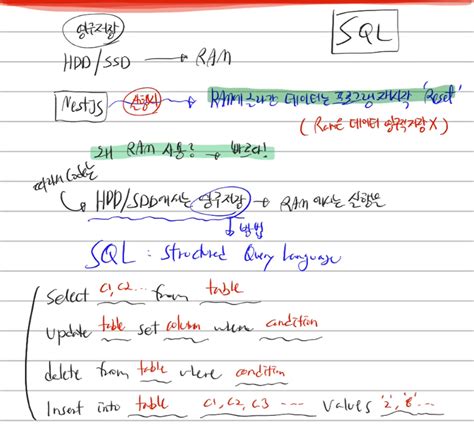 영구저장
SQL
HDD/SSD → RAM
NestJS 실행시 → RAM에 올라간 데이터는 프로그램 재시작 'Reset'
(RAM은 데이터 영구적 저장 X)
왜 RAM 사용? → 빠르다!
따라서 Code는
HDD/SDD에서는 영구저장 → RAM 에서는 실행을
↓ 방법
SQL : Structured Query Language
Select c1, c2... from table
update table set column where condition
delete from table where condition
Insert into table c1, c2, c3 ---- values '2', '8' ---